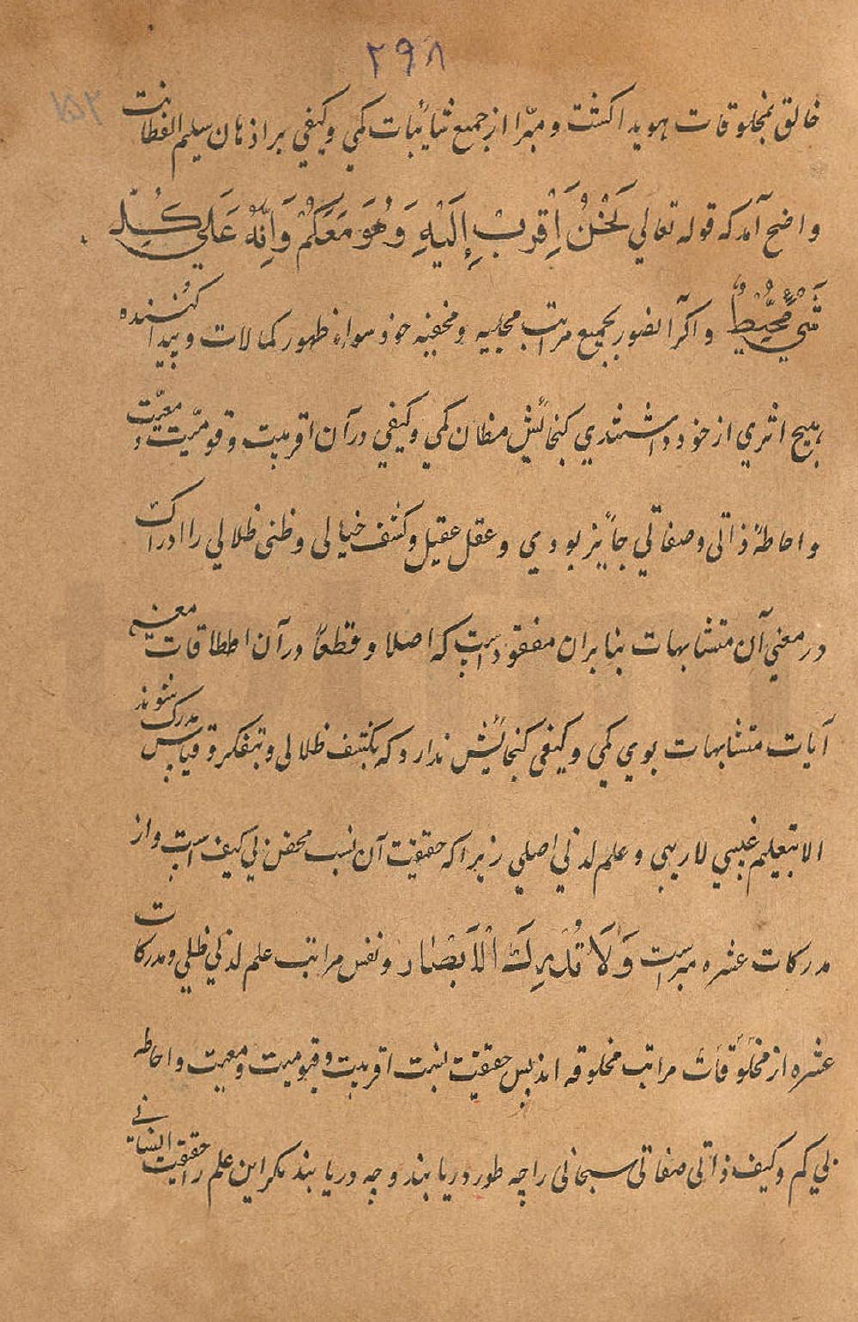 ۲۹۸
۱۵۲
خالق بمخلوقات هویدا کشت و مبرّا از جمیع شایٔبات کمی و کیفی بر اذهان سلیم الفطانت
واضح آمد که قوله تعالی نَحْنُ اَقْرَبُ اِلَیْهِ وَهُوَ مَعَکُمْ وَاِنَّهُ عَلٰی کُلِّ
شَیْ مُحِیْطٌ و اکر آنضور بجمیع مراتب مجلیه و مخفیه خود سواء ظهور کمالات و پیدا کننده
بهیچ اثری از خود داشتندی کنجائش مظان کمی و کیفی در آن اقربیت و قومیّت و معیّت
و احاطهٔ ذاتی و صفاتی جائز بودی و عقل عقیل و کشف خیالی و ظنی ظلالی را ادراک
در معنی آن متشابهات بنابران مفقود است که اصلا و قطعاً در آن اطلاقات معنیه
آیات متشابهات بوی کمی و کیفی کنجائش ندارد که بکشف ظلالی و بتفکر و قیاس مدرک شوند
الا بتعلیم غیبی لاریبی و علم لدنی اصلی زیرا که حقیقت آن نسب محض بی کیف است و از
مدرکات عشره مبراست وَلَا تُدْرِکُ الْاَبْصَار و نفس مراتب علم لدنی ظلی و مدرکات
عشره از مخلوقات مراتب مخلوقه اند پس حقیقت نسبت اقربیت و قیومیت و معیت و احاطه
بی کم و کیف ذاتی صفاتی سبحانی را چه طور دریابند و چه دریابند مکر این علم را حقیقت انسانی